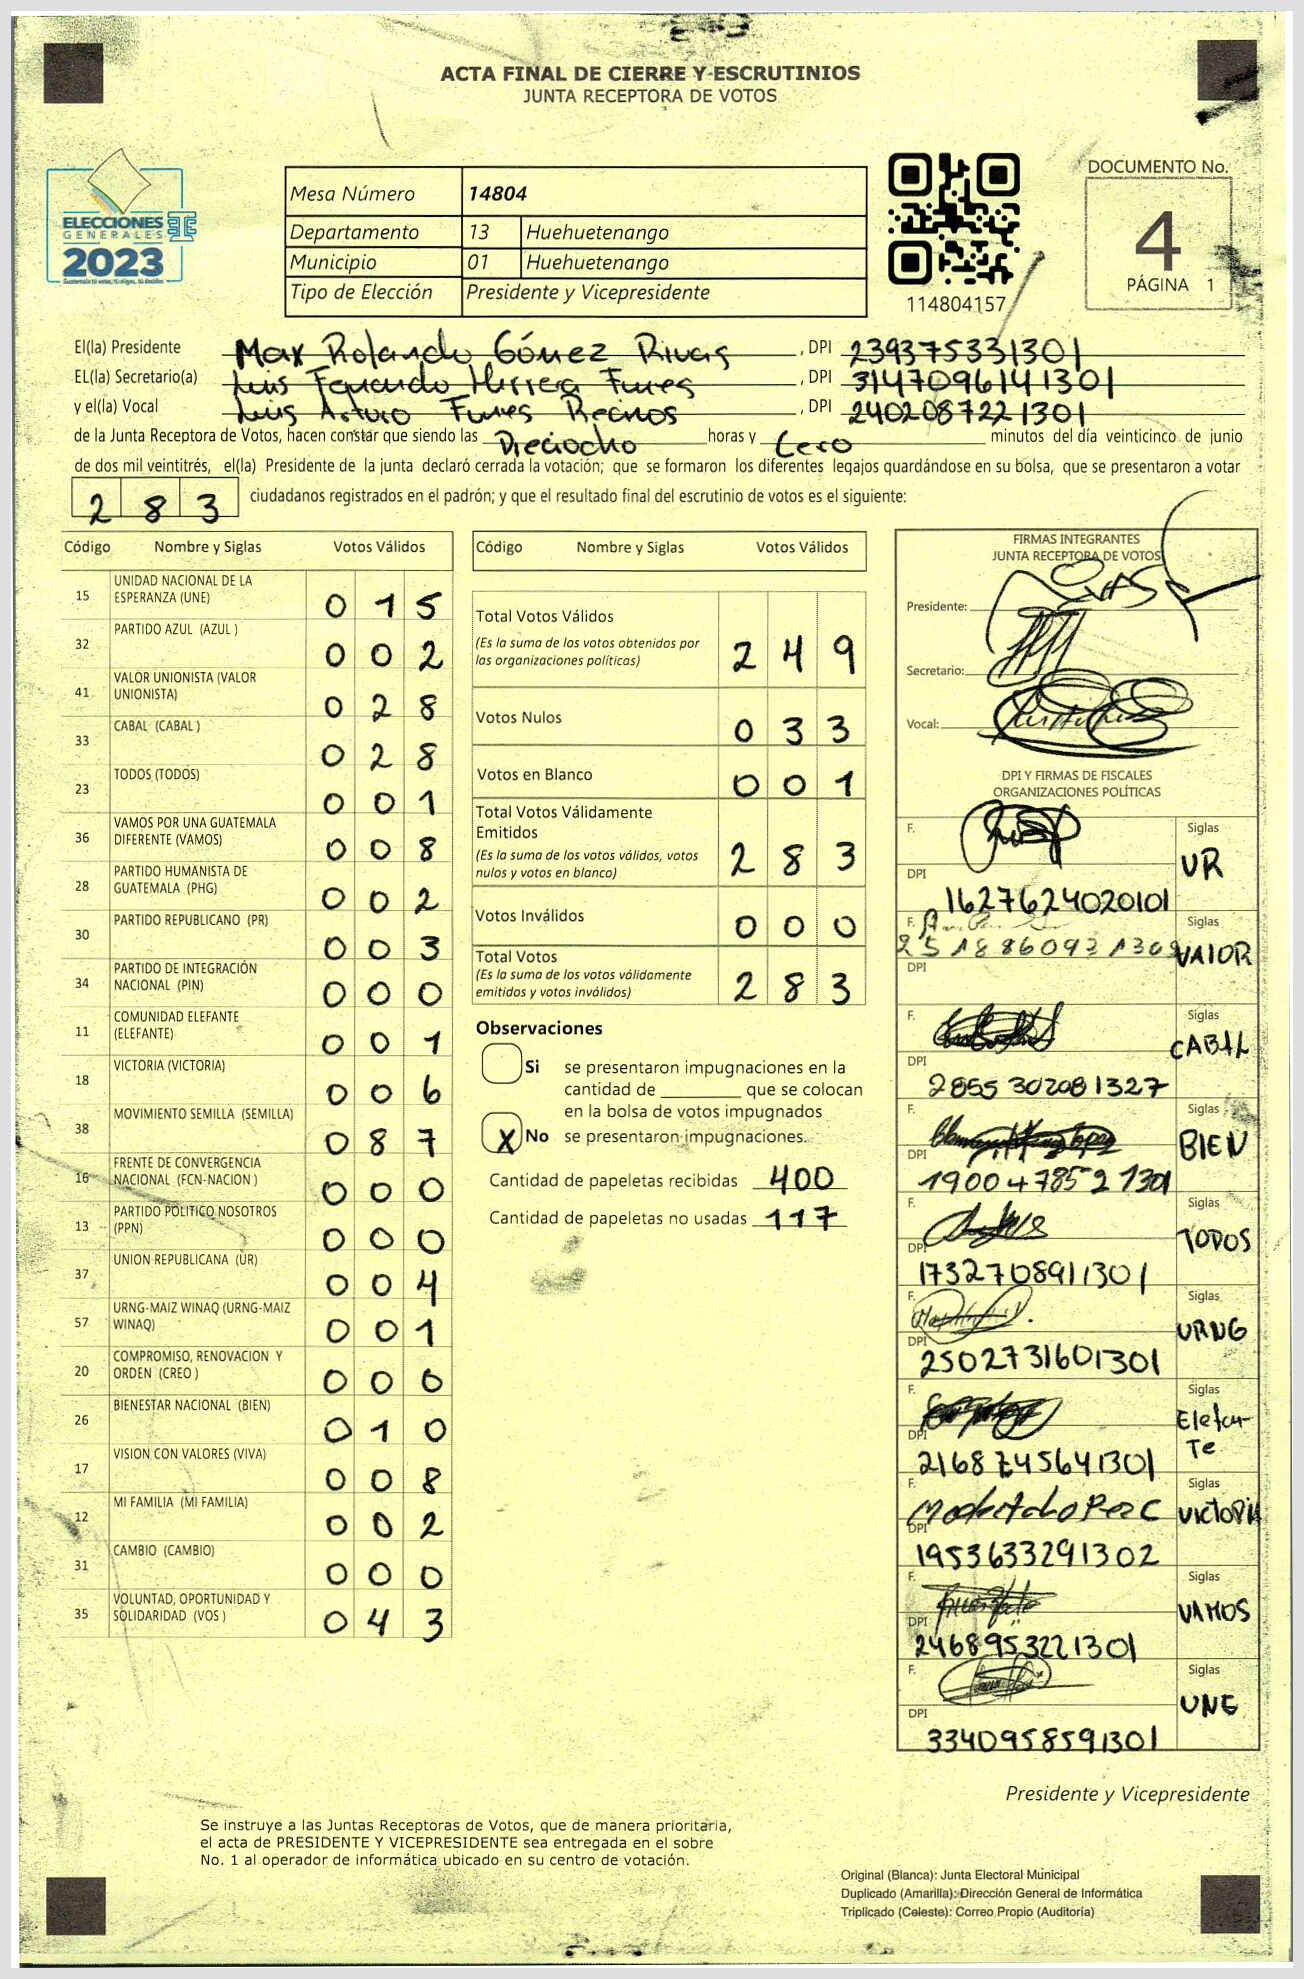 ACTA FINAL DE CIERRE Y ESCRUTINIOS
JUNTA RECEPTORA DE VOTOS
ELECCIONES
GENERALES
2023
Mesa Número 14804
Departamento 13 Huehuetenango
Municipio 01 Huehuetenango
Tipo de Elección Presidente y Vicepresidente
114804157
DOCUMENTO No.
4
PÁGINA 1
El(la) Presidente Max Rolando Gómez Rivas , DPI 239375331301
EL(la) Secretario(a) Luis Fernando Herrera Funes , DPI 3147096141301
y el(la) Vocal Luis Arturo Funes Recinos , DPI 2402087221301
de la Junta Receptora de Votos, hacen constar que siendo las Dieciocho horas y Cero minutos del día veinticinco de junio
de dos mil veintitrés, el(la) Presidente de la junta declaró cerrada la votación; que se formaron los diferentes legajos quardándose en su bolsa, que se presentaron a votar
283 ciudadanos registrados en el padrón; y que el resultado final del escrutinio de votos es el siguiente:
Código Nombre y Siglas Votos Válidos
15 UNIDAD NACIONAL DE LA ESPERANZA (UNE) 015
32 PARTIDO AZUL (AZUL ) 002
41 VALOR UNIONISTA (VALOR UNIONISTA) 028
33 CABAL (CABAL ) 028
23 TODOS (TODOS) 001
36 VAMOS POR UNA GUATEMALA DIFERENTE (VAMOS) 008
28 PARTIDO HUMANISTA DE GUATEMALA (PHG) 002
30 PARTIDO REPUBLICANO (PR) 003
34 PARTIDO DE INTEGRACIÓN NACIONAL (PIN) 000
11 COMUNIDAD ELEFANTE (ELEFANTE) 001
18 VICTORIA (VICTORIA) 006
38 MOVIMIENTO SEMILLA (SEMILLA) 087
16 FRENTE DE CONVERGENCIA NACIONAL (FCN-NACION ) 000
13 PARTIDO POLITICO NOSOTROS (PPN) 000
37 UNION REPUBLICANA (UR) 004
57 URNG-MAIZ WINAQ (URNG-MAIZ WINAQ) 001
20 COMPROMISO, RENOVACION Y ORDEN (CREO ) 000
26 BIENESTAR NACIONAL (BIEN) 010
17 VISION CON VALORES (VIVA) 008
12 MI FAMILIA (MI FAMILIA) 002
31 CAMBIO (CAMBIO) 000
35 VOLUNTAD, OPORTUNIDAD Y SOLIDARIDAD (VOS ) 043
Código Nombre y Siglas Votos Válidos
Total Votos Válidos 249
(Es la suma de los votos obtenidos por
las organizaciones políticas)
Votos Nulos 033
Votos en Blanco 001
Total Votos Válidamente
Emitidos 283
(Es la suma de los votos válidos, votos
nulos y votos en blanco)
Votos Inválidos 000
Total Votos 283
(Es la suma de los votos válidamente
emitidos y votos inválidos)
Observaciones
Si se presentaron impugnaciones en la
cantidad de que se colocan
en la bolsa de votos impugnados
X No se presentaron impugnaciones.
Cantidad de papeletas recibidas 400
Cantidad de papeletas no usadas 117
FIRMAS INTEGRANTES
JUNTA RECEPTORA DE VOTOS
Presidente:
Secretario:
Vocal:
DPI Y FIRMAS DE FISCALES
ORGANIZACIONES POLÍTICAS
F. Siglas UR
DPI 1627624020101
F. Siglas VALOR
DPI
F. Siglas CABAL
DPI 2855302081327
F. Siglas BIEN
DPI 1900478521301
F. Siglas TODOS
DPI 1732708911301
F. Siglas URNG
DPI 2502731601301
F. Siglas Elefan-
te
DPI 2168745641301
F. Siglas VICTORIA
DPI 1953633291302
F. Siglas VAMOS
DPI 2468953221301
F. Siglas UNE
DPI 3340958591301
Presidente y Vicepresidente
Se instruye a las Juntas Receptoras de Votos, que de manera prioritaria,
el acta de PRESIDENTE Y VICEPRESIDENTE sea entregada en el sobre
No. 1 al operador de informática ubicado en su centro de votación.
Original (Blanca): Junta Electoral Municipal
Duplicado (Amarilla): Dirección General de Informática
Triplicado (Celeste): Correo Propio (Auditoría)